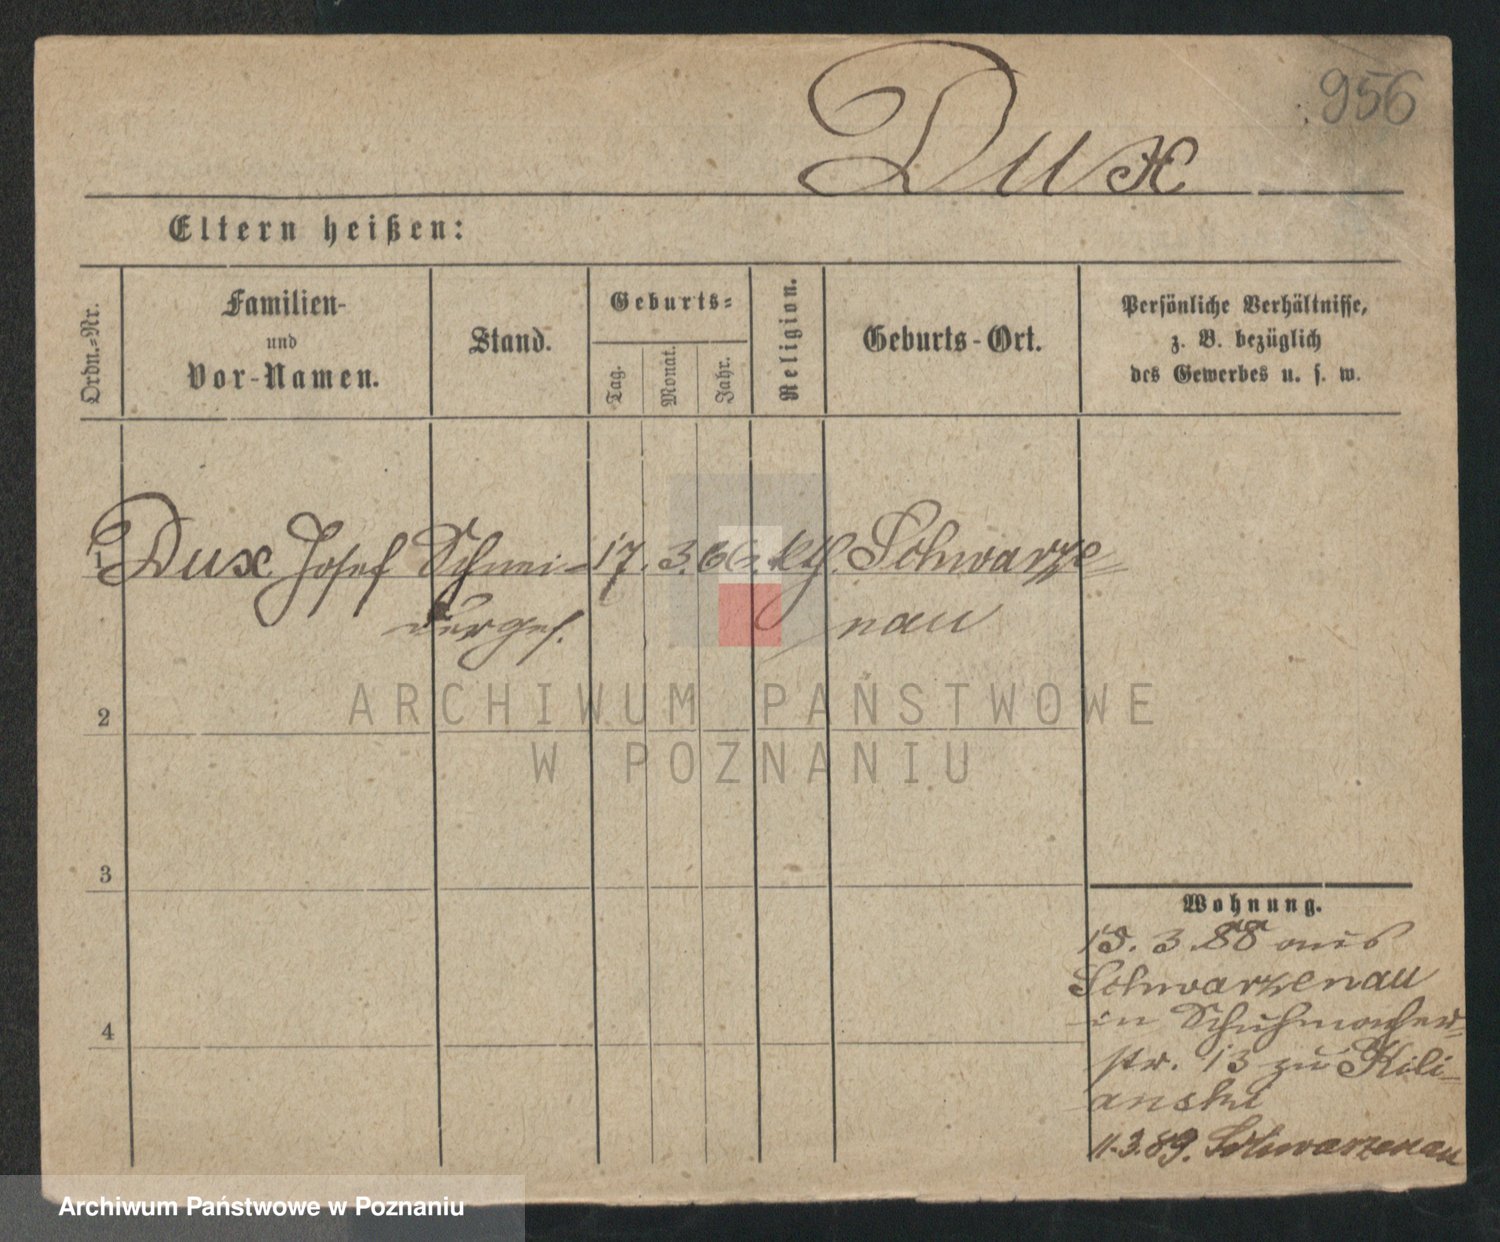 956
Dux
Eltern heißen:
Ordn.-Nr.
Familien-
und
Vor-Namen.
Stand.
Geburts-
Tag.
Monat.
Jahr.
Religion.
Geburts-Ort.
Persönliche Verhältnisse,
z. B. bezüglich
des Gewerbes u. s. w.
1 Dux Josef Schnei- 17. 3. 66. kth. Schwarze-
derges. nau
2
3
4
Wohnung.
18. 3. 88 aus
Schwarzenau
in Schuhmacher-
str. 13 zu Kili-
anski
11.3.89. Schwarzenau
ARCHIWUM PAŃSTWOWE
W POZNANIU
Archiwum Państwowe w Poznaniu